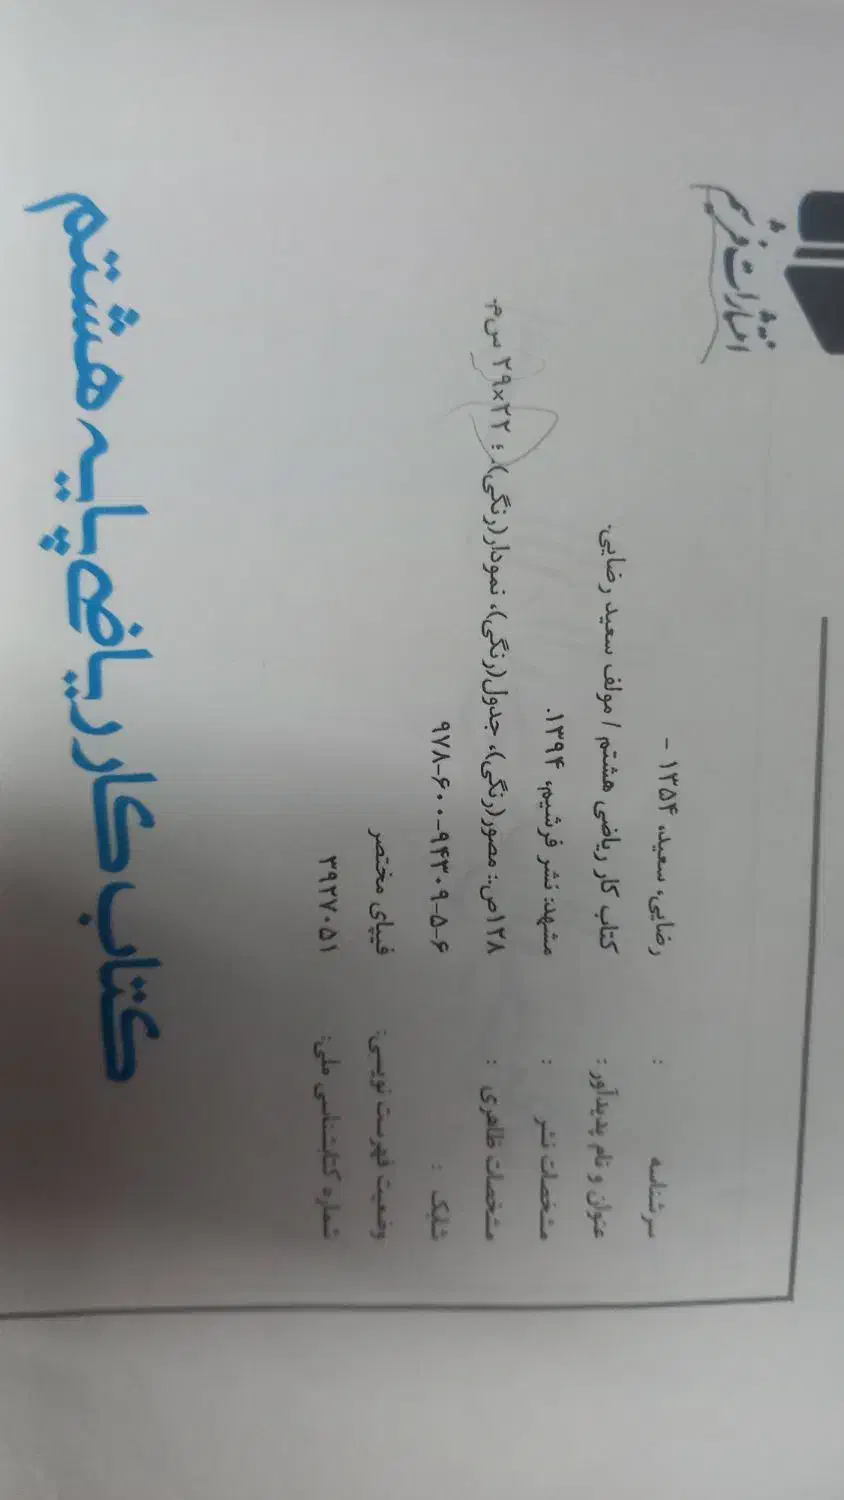 انتشارات فرشیم
سرشناسه : رضایی، سعید، ۱۳۵۴ -
عنوان و نام پدیدآور : کتاب کار ریاضی هشتم / مولف سعید رضایی.
مشخصات نشر : مشهد: نشر فرشیم، ۱۳۹۴.
مشخصات ظاهری : ۱۲۸ص.: مصور(رنگی)، جدول(رنگی)، نمودار(رنگی)، ؛ ۲۲×۲۹ س م.
شابک : ۹۷۸-۶۰۰-۹۴۳۰۹-۵-۶
وضعیت فهرست نویسی: فیپای مختصر
شماره کتابشناسی ملی: ۳۹۲۷۰۵۱
کتاب کار ریاضی پایه هشتم